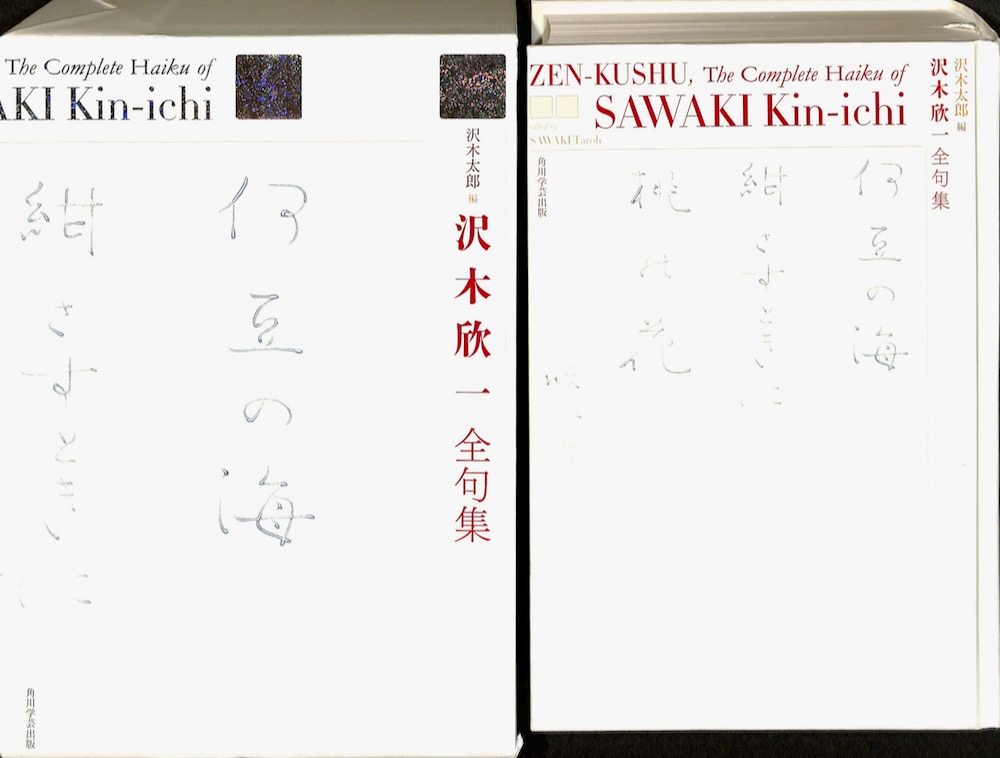 The Complete Haiku of
AKI Kin-ichi
沢木太郎 編
沢木欣一 全句集
伊豆の海
紺さすときに
角川学芸出版
ZEN-KUSHU, The Complete Haiku of
SAWAKI Kin-ichi
edited by
SAWAKI Taroh
沢木太郎 編
沢木欣一 全句集
伊豆の海
紺さすときに
桃の花
角川学芸出版